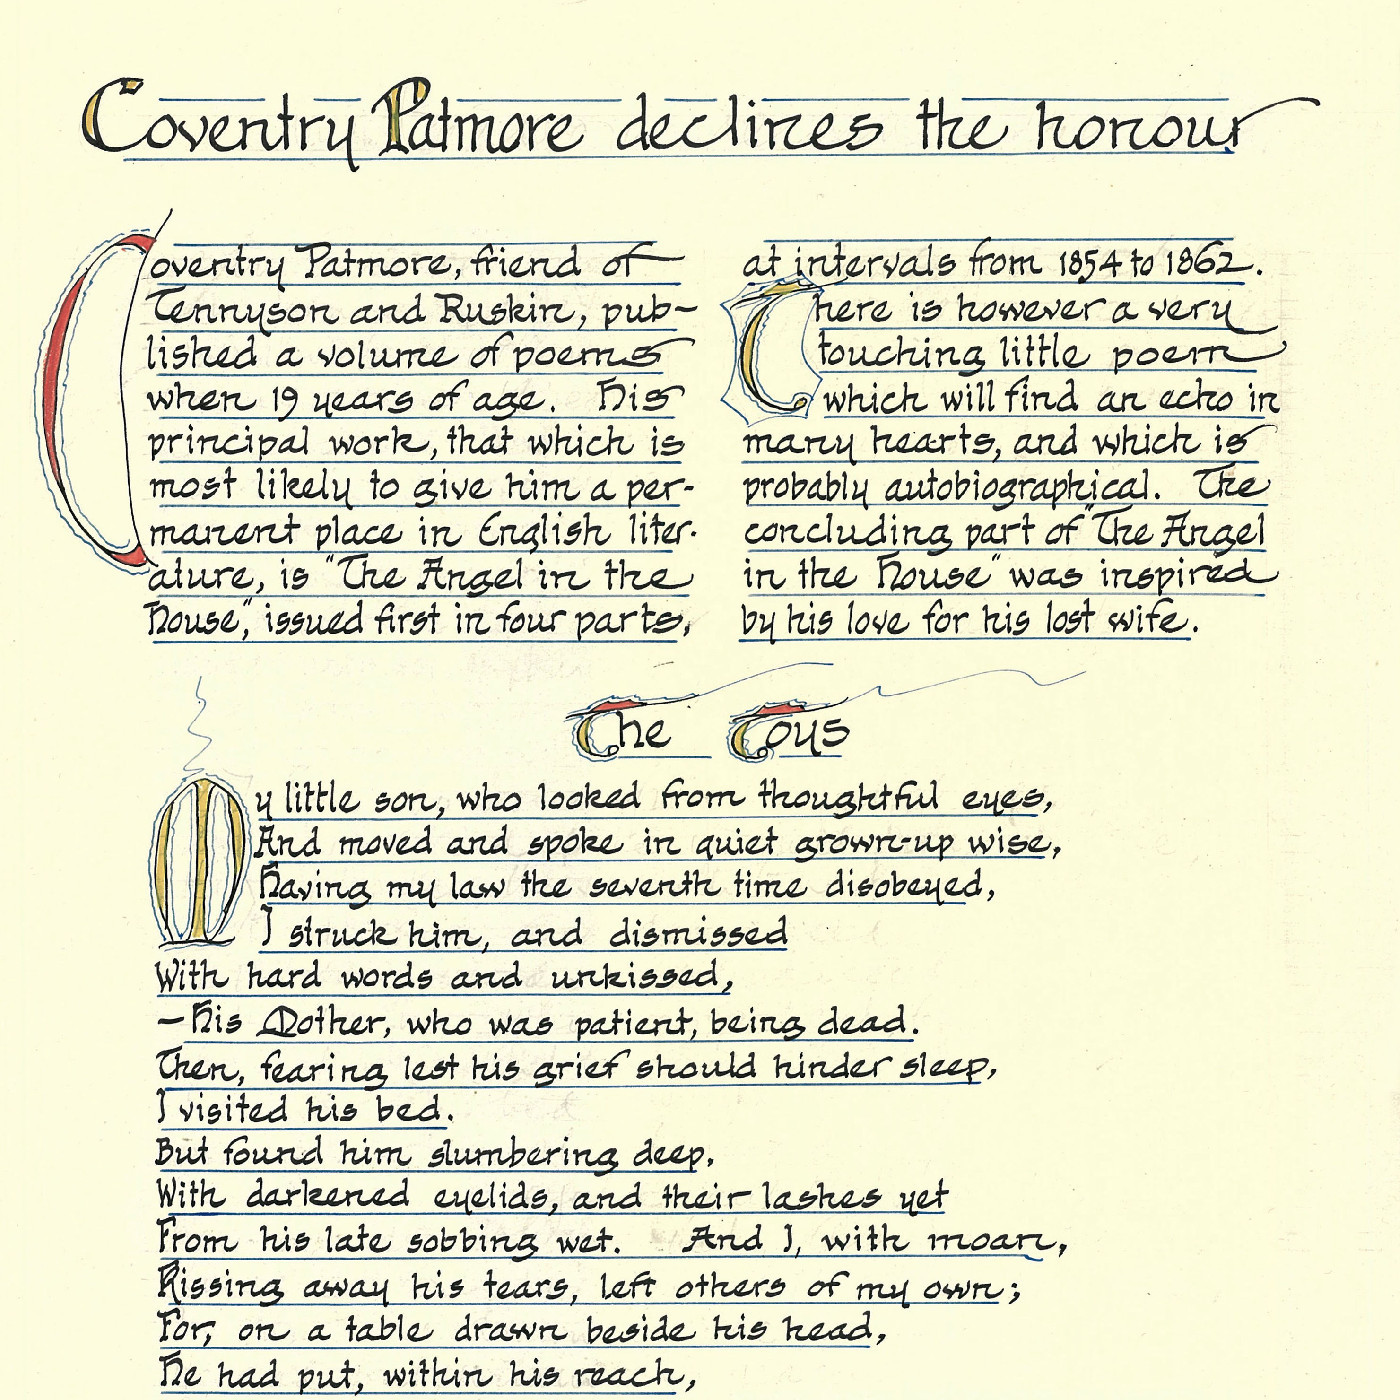 Coventry Patmore declines the honour
Coventry Patmore, friend of
Tennyson and Ruskin, pub-
lished a volume of poems
when 19 years of age. His
principal work, that which is
most likely to give him a per-
manent place in English liter-
ature, is "The Angel in the
House", issued first in four parts,
at intervals from 1854 to 1862.
There is however a very
touching little poem
which will find an echo in
many hearts, and which is
probably autobiographical. The
concluding part of "The Angel
in the House" was inspired
by his love for his lost wife.
The Toys
My little son, who looked from thoughtful eyes,
And moved and spoke in quiet grown-up wise,
Having my law the seventh time disobeyed,
I struck him, and dismissed
With hard words and unkissed,
—His Mother, who was patient, being dead.
Then, fearing lest his grief should hinder sleep,
I visited his bed.
But found him slumbering deep,
With darkened eyelids, and their lashes yet
From his late sobbing wet. And I, with moan,
Kissing away his tears, left others of my own;
For, on a table drawn beside his head,
He had put, within his reach,